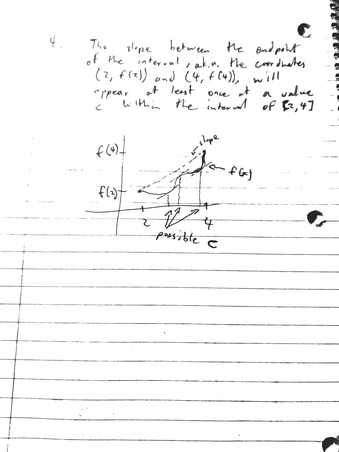 4. The slope between the endpoint
of the interval, a.k.a. the coordinates
(2, f(2)) and (4, f(4)), will
appear at least once at a value
c within the interval of [2,4]
slope
f(4)
f(x)
f(2)
2 4
possible c